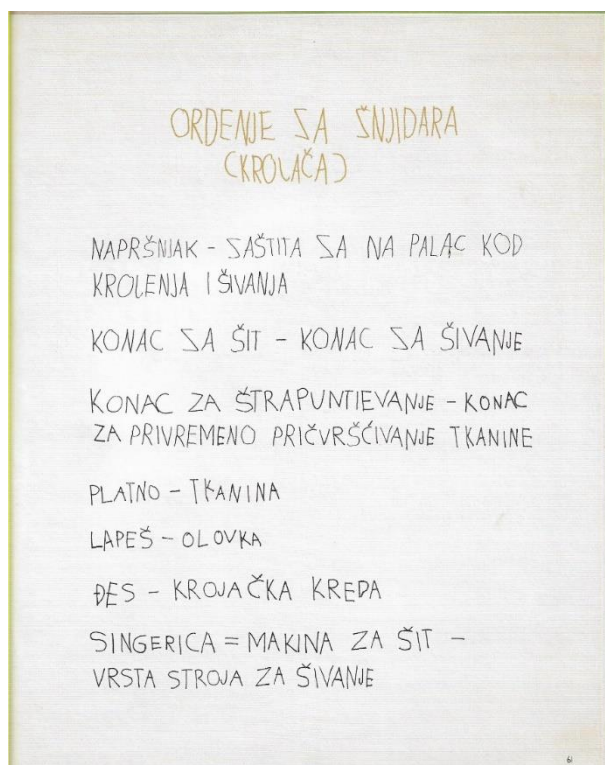 ORDENJE ZA ŠNJIDARA
(KROJAČA)
NAPRŠNJAK - ZAŠTITA ZA NA PALAC KOD
KROJENJA I ŠIVANJA
KONAC ZA ŠIT - KONAC ZA ŠIVANJE
KONAC ZA ŠTRAPUNTIEVANJE - KONAC
ZA PRIVREMENO PRIČVRŠĆIVANJE TKANINE
PLATNO - TKANINA
LAPEŠ - OLOVKA
ĐES - KROJAČKA KREDA
SINGERICA = MAKINA ZA ŠIT -
VRSTA STROJA ZA ŠIVANJE
61